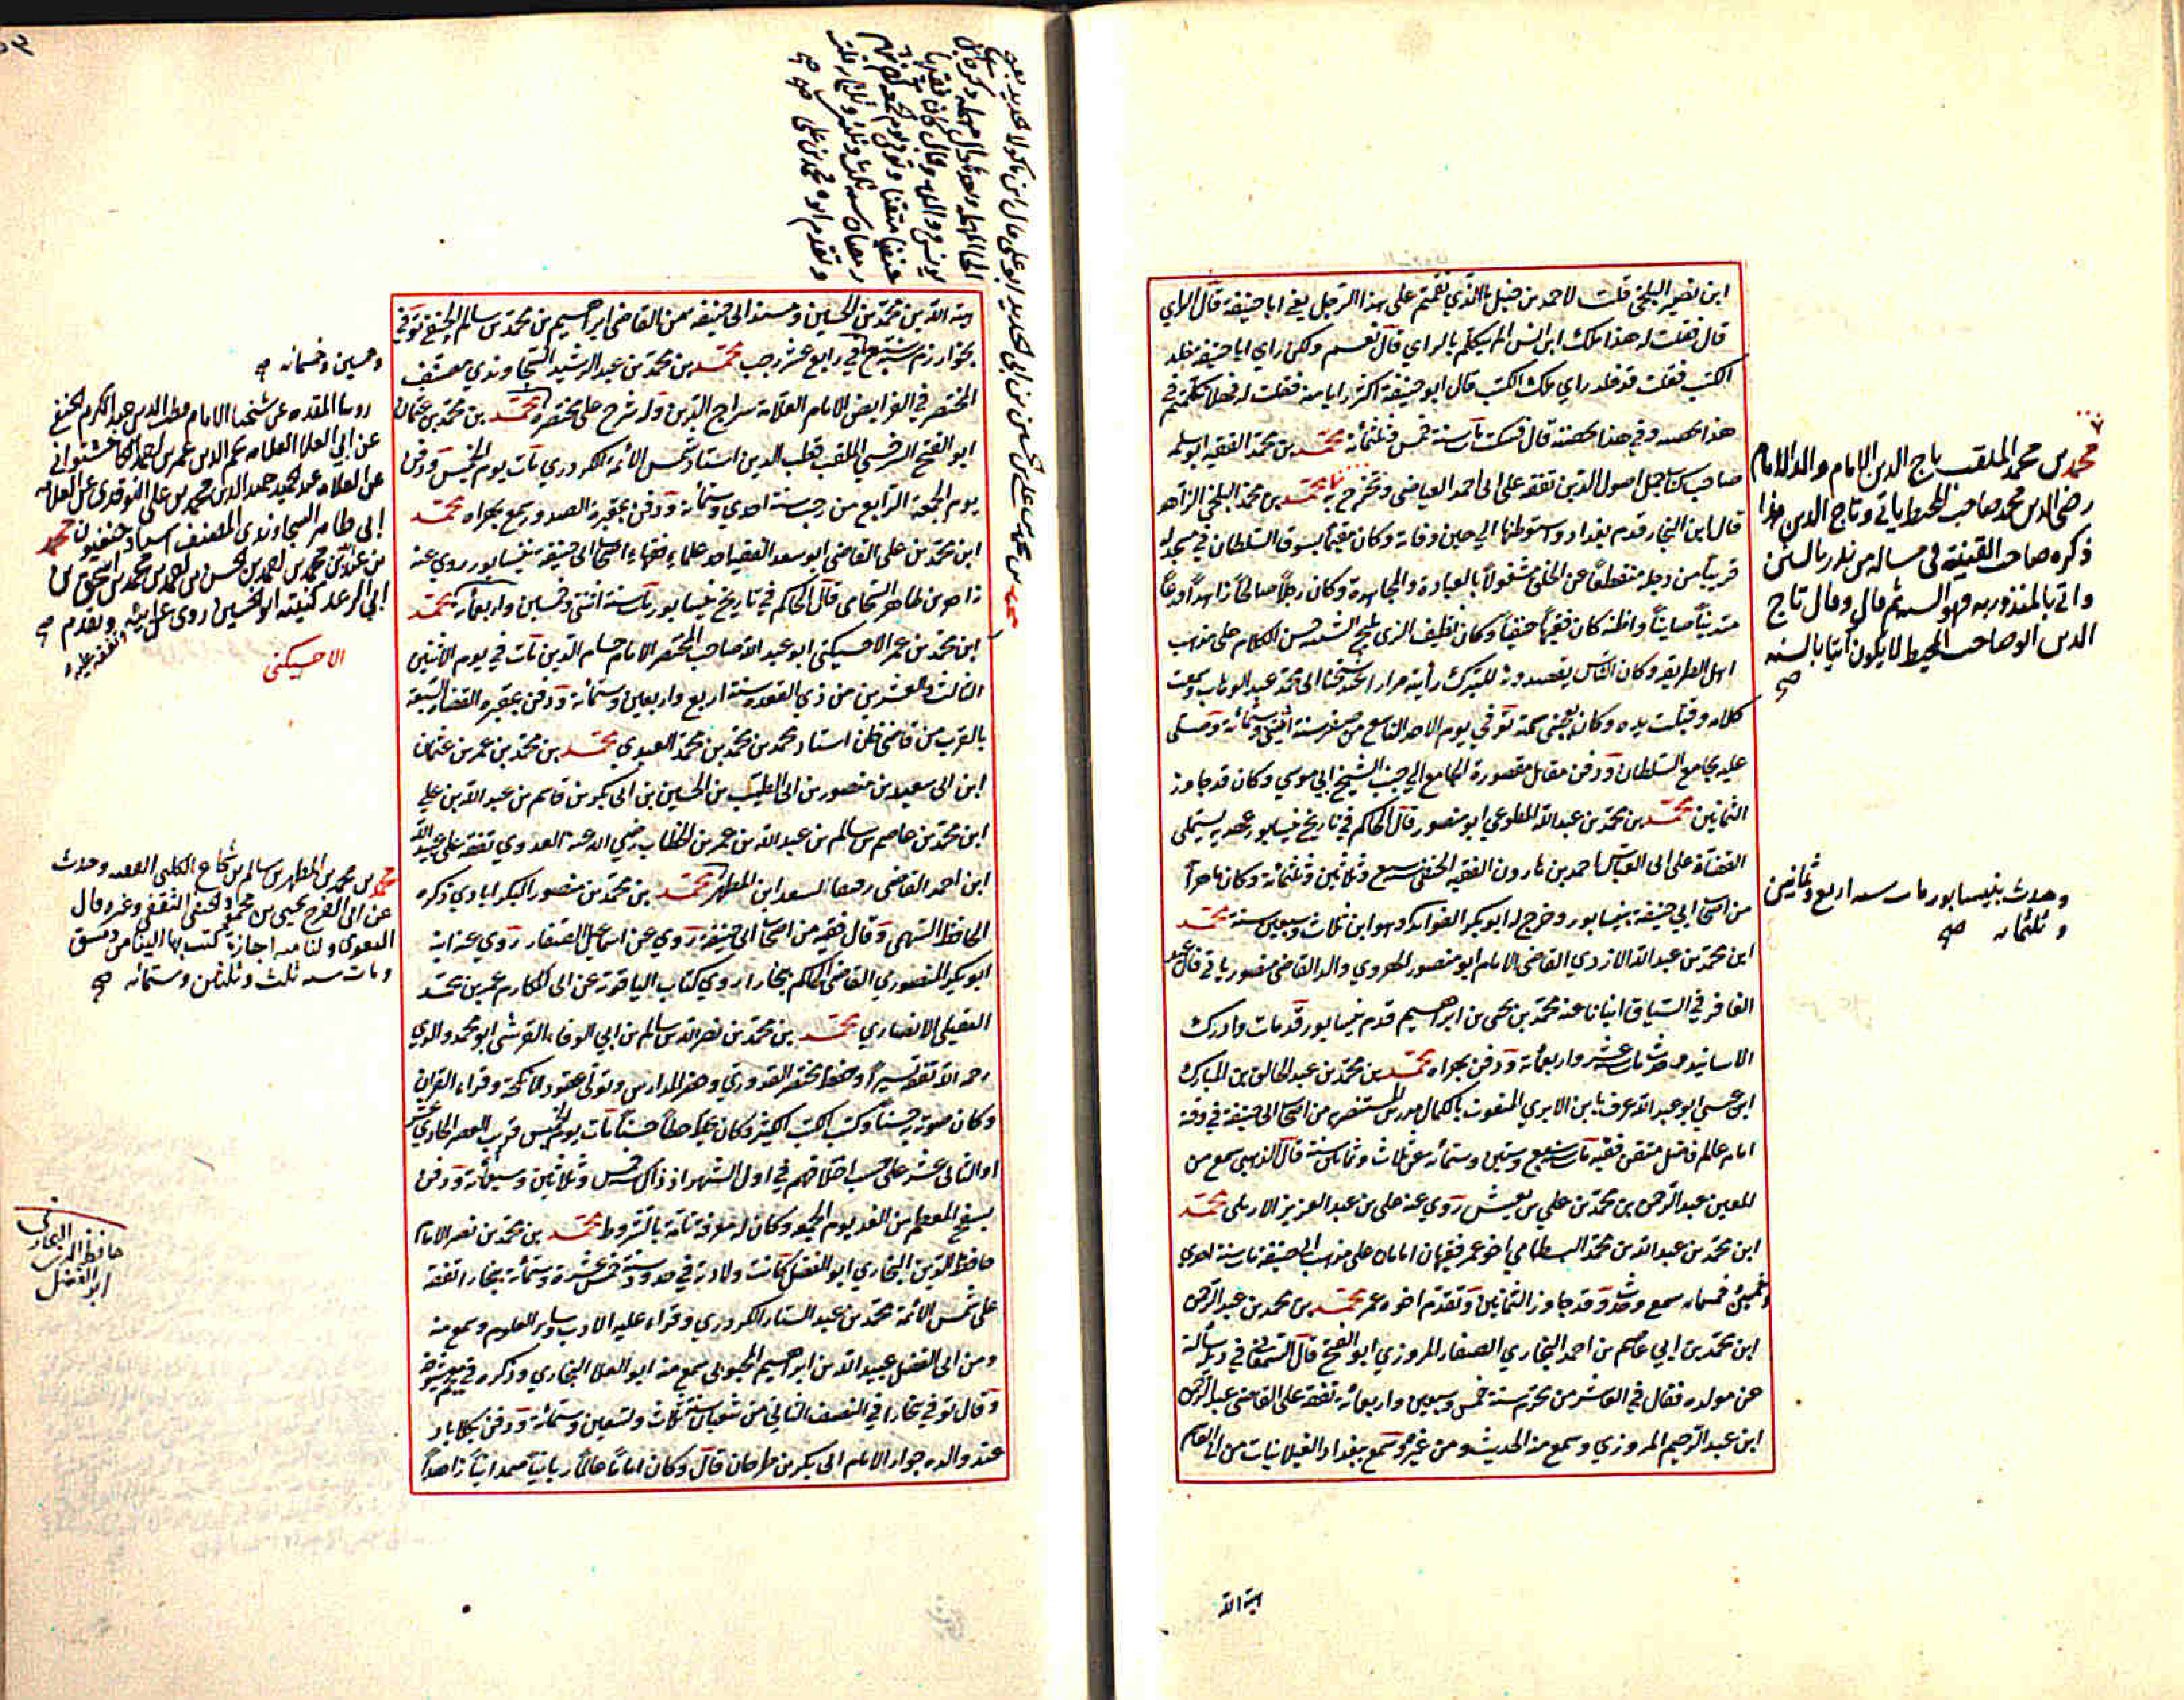 ابن نصير البلخي قلت لاحمد بن حنبل ما الذي نقمتم على هذا الرجل يعني ابا حنيفة قال الراي
قال فقلت له هذا مالك ابن انس الم يتكلم بالراي قال نعم ولكن راي ابا حنيفة خلد
الكتب فقلت قد خلد راي مالك الكتب قال ابو حنيفة اكثر رايا منه فقلت له فهلا تكلمتم في
هذا بحصته وفي هذا بحصته قال فسكت مات سنة خمس وثلثمائة محمد بن محمد الفقيه ابو سلمه
صاحب كتاب جمل اصول الدين تفقه على ابي احمد العياضي وتخرج به محمد بن محمد البلخي الزاهد
قال ابن النجار قدم بغداد واستوطنها الي حين وفاته وكان مقيما بسوق السلطان في مسجد له
قريبا من دجلة منقطعا عن الخلق مشغولا بالعبادة والمجاهدة وكان رجلا صالحا زاهدا ورعا
متدينا صاينا واظنه كان فقيها حنفيا وكان نظيف الزي مليح الشيبة حسن الكلام على مذهب
اهل الطريقه وكان الناس يقصدونه للتبرك رايته مرارا عند شيخنا ابي محمد عبد الوهاب وسمعت
كلامه وقبلت يده وكان يعجبني سمته توفي يوم الاحد التاسع من صفر سنة اثنين وستمائة وصلي
عليه بجامع السلطان ودفن مقابل مقصورة الجامع الي جنب الشيخ ابي موسي وكان قد جاوز
الثمانين محمد بن محمد بن عبد الله المطوعي ابو منصور قال الحاكم في تاريخ نيسابور عهدته يستملي
القضاة على ابي العباس احمد بن هارون الفقيه الحنفي سنة سبع وثلاثين وثلثمائة وكان ماهرا
من اصحاب ابي حنيفة بنيسابور وخرج له ابو بكر الفوايد وهو ابن ثلاث وسبعين سنة محمد
ابن محمد بن عبد الله الازدي القاضي الامام ابو منصور الهروي والد القاضي منصور ياتي قال عبد
الغافر في السياق انبانا عنه محمد بن يحيى بن ابراهيم قدم نيسابور قد مات وادرك
الاسانيد وحدث مات سنة عشر واربعمائة ودفن بهراه محمد بن محمد بن عبد الخالق بن المبارك
ابن عيسي ابو عبد الله عرف بابن الابري المنعوت بالكمال مدرس المستنصريه من اصحاب ابي حنيفة في وقته
امام عالم فاضل متقن فقيه مات سنة سبع وستين وستمائه عن ثلاث وثمانين سنة قال الذهبي سمع من
المعين عبد الرحمن بن محمد بن علي بن يعيش روي عنه علي بن عبد العزيز الاربلي محمد
ابن محمد بن عبد الله بن محمد البسطامي اخو عمر فقيهان امامان على مذهب ابي حنيفة مات سنة احدي
وخمسين خمسمائه سمع وحدث وقد جاوز الثمانين وتقدم اخوه عمر محمد بن محمد بن عبد الرحمن
ابن محمد بن ابي عاصم بن احمد البخاري الصفار المروزي ابو الفتح قال السمعاني في ذيله سالته
عن مولده فقال في العاشر من محرم سنة خمس وسبعين واربعمائه تفقه على القاضي عبد الرحمن
ابن عبد الرحيم المروزي وسمع منه الحديث ومن غيره وسمع ببغداد الغيلانيات من ابي القاسم
هبة الله
محمد بن محمد الملقب تاج الدين الامام والد الامام
رضي الدين محمد صاحب المحيط ياتي وتاج الدين هذا
ذكره صاحب القنية في مسالة من نذر بالسنن
واتي بالمنذور به فهو السنه ثم قال وقال تاج
الدين ابو صاحب المحيط لا يكون آتيا بالسنه
صح
وحدث بنيسابور مات سنه اربع وثمانين
وثلثمائه صح
هبة الله بن محمد بن الحسين ومسند ابي حنيفه من القاضي ابراهيم بن محمد بن سالم الحنفي توفي
بخوارزم سنة سبع في رابع عشر رجب محمد بن محمد بن عبد الرشيد السجاوندي مصنف
المختصر في الفرايض الامام العلامة سراج الدين وله شرح على مختصره محمد بن محمد بن عثمان
ابو الفتح السرخسي الملقب قطب الدين استاد شمس الائمة الكردري مات يوم الخميس ودفن
يوم الجمعة الرابع من رجب سنة احدي وستمائة ودفن بمقبرة الصدور سمع بهراه محمد
ابن محمد بن علي القاضي ابو سعد الفقيه احد علماء فقهاء اصحاب ابي حنيفة بنيسابور روي عنه
زاهر بن طاهر الشحامي قال الحاكم في تاريخ نيسابور مات سنة اثنتي وخمسين واربعمائة محمد
ابن محمد بن عمر الاخسيكتي ابو عبد الله صاحب المختصر الامام حسام الدين مات في يوم الاثنين
الثالث والعشرين من ذي القعده سنة اربع واربعين وستمائة ودفن بمقبرة القضاة السبعة
بالقرب من قاضي خان استاد محمد بن محمد بن محمد العبيدي محمد بن محمد بن عمر بن عثمان
ابن ابي سعيد بن منصور بن ابي الطيب بن الحسين بن ابي بكر بن قاسم بن عبد الله بن علي
ابن محمد بن عاصم بن سالم بن عبد الله بن عمر بن الخطاب رضي الله عنه العدوي تفقه على عبيد الله
ابن احمد القاضي رفيقا لسعد ابن المطهر محمد بن محمد بن منصور البكراباذي ذكره
الحافظ السهمي وقال فقيه من اصحاب ابي حنيفة روي عن اسماعيل الصفار روي عنه ابنه
ابو بكر المنصوري القاضي الحاكم ببخارا روي كتاب الياقوتة عن ابي المكارم عمر بن محمد
العقيلي الانصاري محمد بن محمد بن نصر الله بن سالم بن ابي الوفاء القرشي ابو محمد والدي
رحمه الله تفقه يسيرا وحفظ مختصر القدوري وحضر المدارس وتولى عقود الانكحة وقراء القران
وكان صوته حسنا وكتب الكتب الكثيرة وكان يخط خطا حسنا مات يوم الخميس قريب العصر الحادي عشر
او الثاني عشر على حسب اختلافهم في اول الشهر اذ ذاك سنة خمس وثلاثين وسبعمائة ودفن
بسفح المقطم من الغد يوم الجمعه وكان له معرفة تامة بالشروط محمد بن محمد بن نصر الامام
حافظ الدين البخاري ابو الفضل كانت ولادته في حدود سنة خمس عشرة وستمائة ببخارا تفقه
على شمس الائمة محمد بن عبد الستار الكردري وقراء عليه الادب وساير العلوم وسمع منه
ومن ابي الفضل عبيد الله بن ابراهيم المحبوبي سمع منه ابو العلا البخاري وذكره في معجم شيوخه
وقال توفي ببخارا في النصف الثاني من شعبان سنة ثلاث وتسعين وستمائة ودفن بكلاباد
عند والده جوار الامام ابي بكر بن طرخان قال وكان اماما عالما ربانيا صمدانيا زاهدا
محمد بن محمد بن علي بن الحسن بن ابي الحديد ابو علي قال ابن ماكولا
يونس والله وقال كان فقيها
حنفيا متقنا وتوفي يوم الجمعه
رمضان سنه ثلاث وثلاثين وثلثمائه
وتقدم ابوه محمد بن علي صح
وخمسين وخمسمائه صح
روينا المقدمه عن شيخنا الامام قطب الدين عبد الكريم الحنفي
عن ابي العلا العلامه نجم الدين عمر بن احمد الكاخشتواني
عن العلامه عبد الحميد حميد الدين محمد بن علي النوقدي عن العلامه
ابي طاهر السجاوندي المصنف اسناد حنفيون محمد
بن محمد بن احمد بن الحسن بن احمد بن محمد بن اسحق بن
ابي الرعد كنيته ابو الحسين روي عن ابيه وتفقه عليه وتقدم صح
الاخسيكتي
محمد بن محمد بن المطهر بن سالم بن شجاع الكلبي الفقيه وحدث
عن ابي الفرج يحيى بن محمود الثقفي وغيره قال
ولنا منه اجازة كتب بها الينا من دمشق
ومات سنه ثلث وثلثين وستمائه صح
حافظ الدين البخاري
ابو الفضل